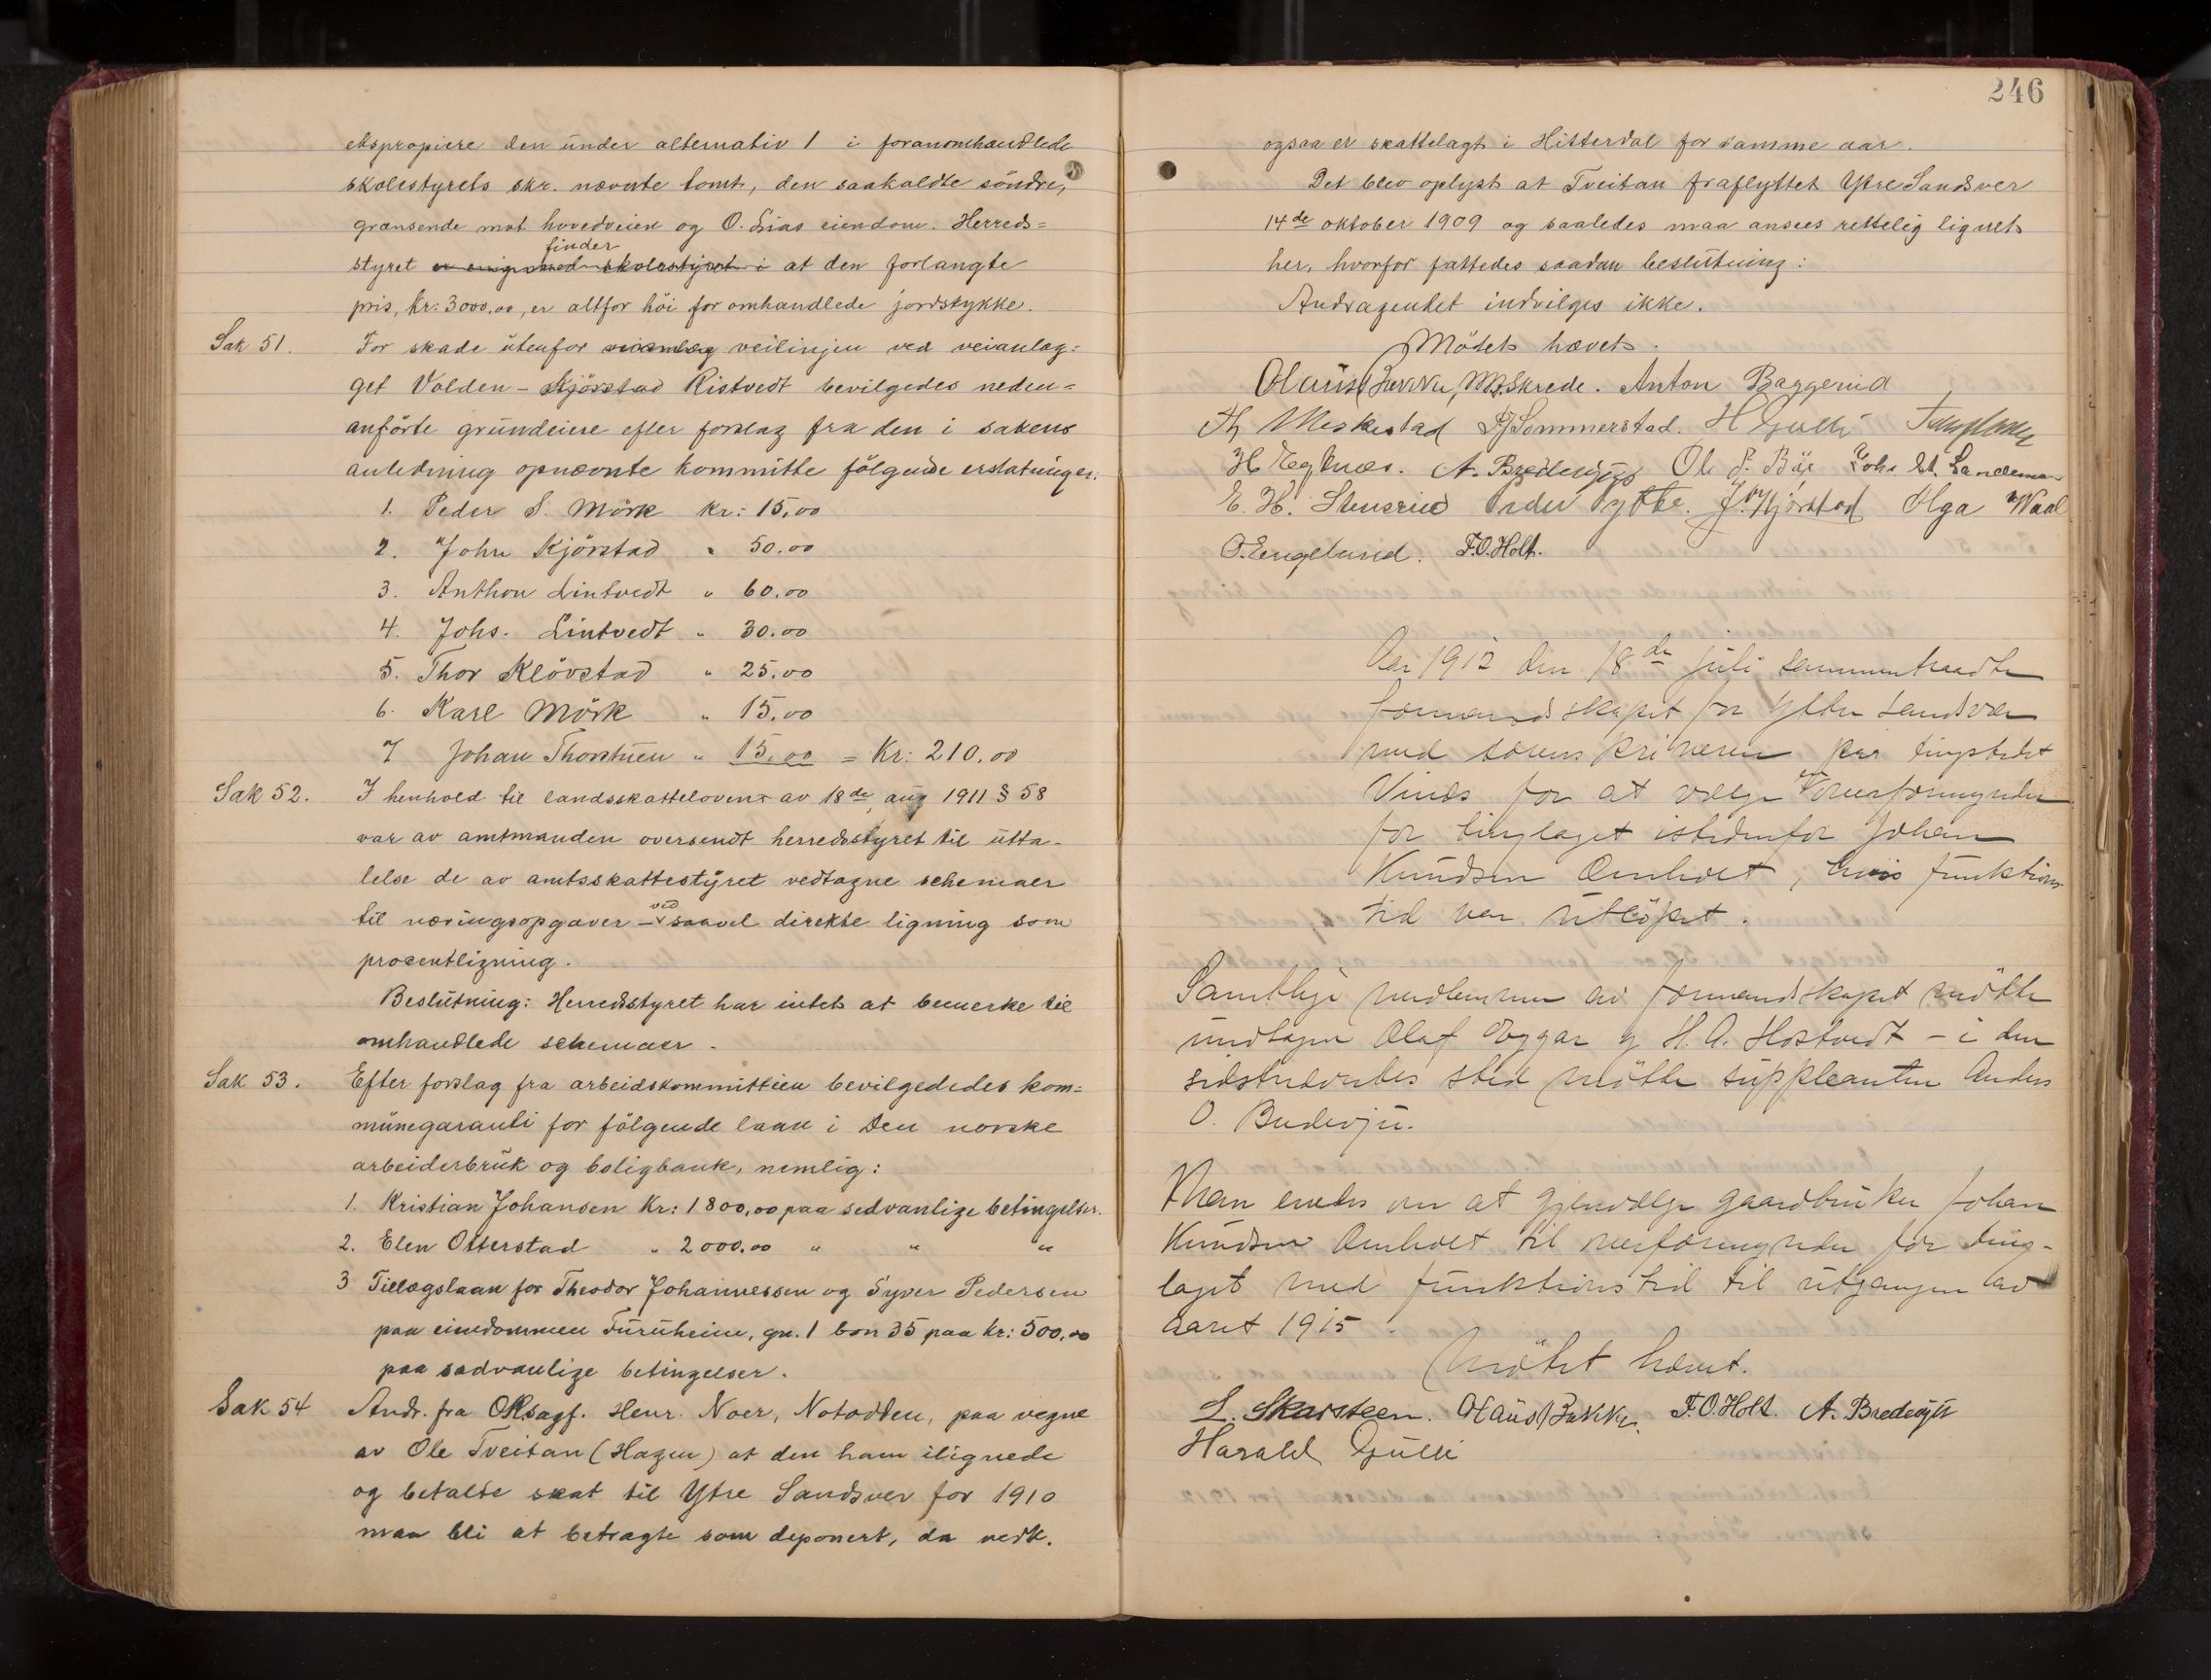 ekspropiere den under alternativ 1 i foranomhandlede
skolestyrets skr. nævnte tomt, den saakaldte söndre,
grænsende mot hovedveien og O. Lias eiendom. Herreds=
finder
styret er enig med skolestyret i at den forlangte
pris, kr: 3000,00, er altfor höi for omhandlede jordstykke.
Sak 51. For skade utenfor veianlæg veilinjen ved veianlæg=
get Volden - Kjörstad Ristvedt bevilgedes neden=
anförte grundeiere efter forslag fra den i sakens
anledning opnævnte kommitte fölgende erstatninger.
1. Peder S. Mörk kr: 15,00
2. John Kjörstad " 50.00
3. Anthon Lintvedt " 60.00
4. Johs. Lintvedt " 30.00
5. Thor Klövstad " 25.00
6. Karl Mörk " 15.00
7 Johan Thorstuen " 15.00 = Kr: 210.00
Sak 52. I henhold til landsskatteloven av 18de aug 1911 § 58
var av amtmanden oversendt herredsstyret til utta-
lelse de av amtsskattestyret vedtagne schemaer
ved
til næringsopgaver - saavel direkte ligning som
procentligning.
Beslutning: Herredsstyret har intet at bemerke til
omhandlede schemaer.
Sak 53. Efter forslag fra arbeidskommitteen bevilgededes kom=
munegaranti for fölgende laan i Den norske
arbeiderbruk og boligbank, nemlig:
1. Kristian Johansen Kr: 1800,00 paa sedvanlige betingelser.
2. Elen Otterstad " 2000.00 " " "
3 Tillægslaan for Theodor Johannessen og Syver Pedersen
paa eiendommen Furuheim, gn. 1 bn 35 paa kr: 500,00
paa sædvanlige betingelser.
Sak 54 Andr. fra ORsagf. Henr. Noer, Notodden, paa vegne
av Ole Tveitan (Hagen) at den ham ilignede
og betalte skat til Ytre Sandsver for 1910
maa bli at betragte som deponert, da vedk.
246
ogsaa er skattelagt i Hitterdal for samme aar.
Det blev oplyst at Tveitan fraflyttet Ytre Sandsver
14de oktober 1909 og saaledes maa ansees rettelig lignet
her, hvorfor fattedes saadan beslutning:
Andragendet indvilges ikke.
Mödet hævet.
Olaus Bakke, M. Skrede. Anton Baggerud
Th Meskestad Sommerstad. H Gulli
H Tegknæs. A. Bredesgt Ole P. Böe Johs St. Landemo
E. H. Stensrud Peder Ytte. J. Kjörstad Olga Waal
O. Englund. F.O. Holt.
Aar 1912 den 18de juli sammentraadte
formandskapet for Ytter Sandsvær
med sorenskriveren paa tingstedet
Vinæs for at vælge overformynder
for tinglaget istedenfor Johan
Knudsen Omholt, hvis funktions
tid var utlöpet.
Samtlige medlemmer av formandskapet mötte
undtagen Olaf Eggar og H. A. Hostvedt - i den
sidstnævntes sted mötte suppleanten Anders
O. Buderju.
Man enedes om at gjenvælge gaardbruker Johan
Knudsen Omholt til overformynder for ting-
laget med funktionstid til utgangen av
aaret 1915.
Mötet hævet.
L. Skarsteen. Olaus Bakke. F.O. Holt. A. Bredesgt
Harald Gulli